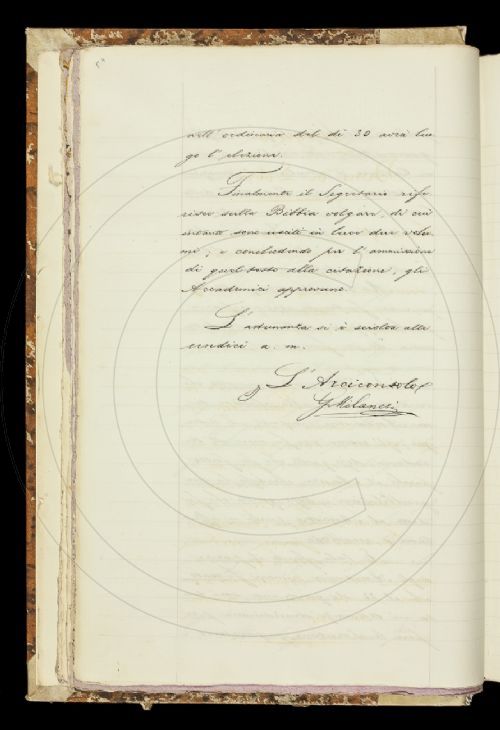 54
nell' ordinaria del dì 30 avrà luo
go l' elezione.
Finalmente il Segretario rife
risce sulla Bibbia volgare, di cui
intanto sono usciti in luce due volu
mi; e concludendo per l' ammissione
di quel testo alla citazione, gli
Accademici approvano.
L' adunanza si è sciolta alle
undici a. m.
L' Arciconsolo
G Milanesi